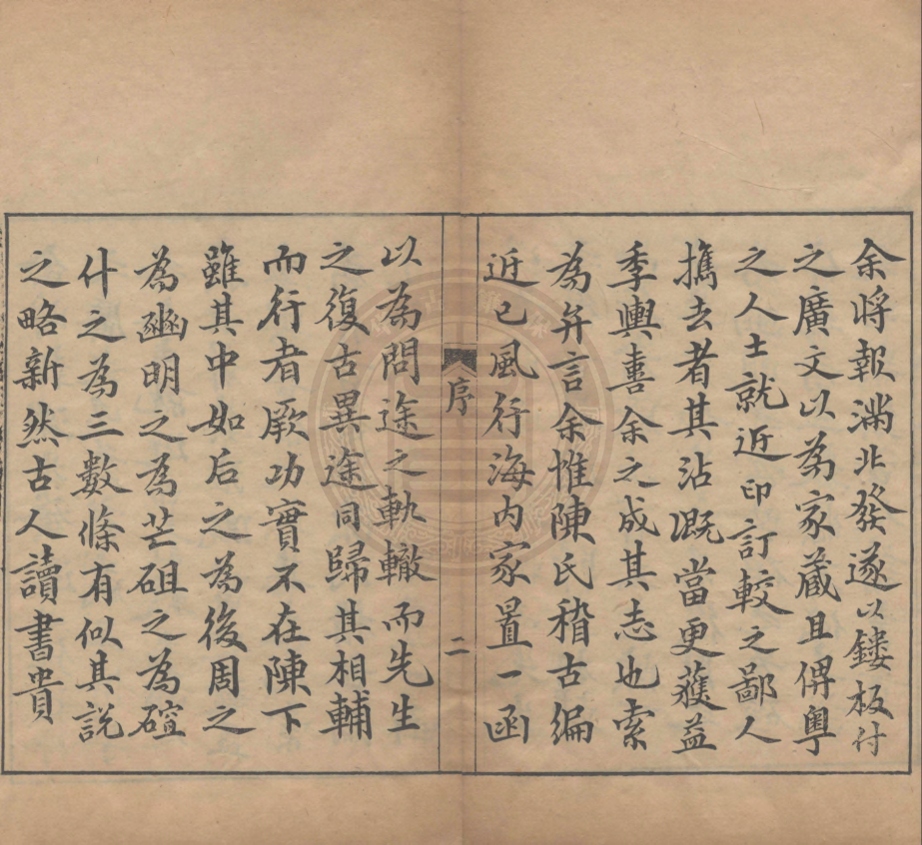 余將報滿北發遂以鏤板付
之廣文以為家藏且俾粵
之人士就近印訂較之鄙人
攜去者其沾溉當更蒦益
季輿喜余之成其志也索
為弁言余惟陳氏稽古編
近已風行海内家置一函
序
二
以為問途之軌轍而先生
之復古異途同歸其相輔
而行者厥功實不在陳下
雖其中如后之為後周之
為豳明之為芒砠之為碹
什之為三數條有似其說
之略新然古人讀書貴